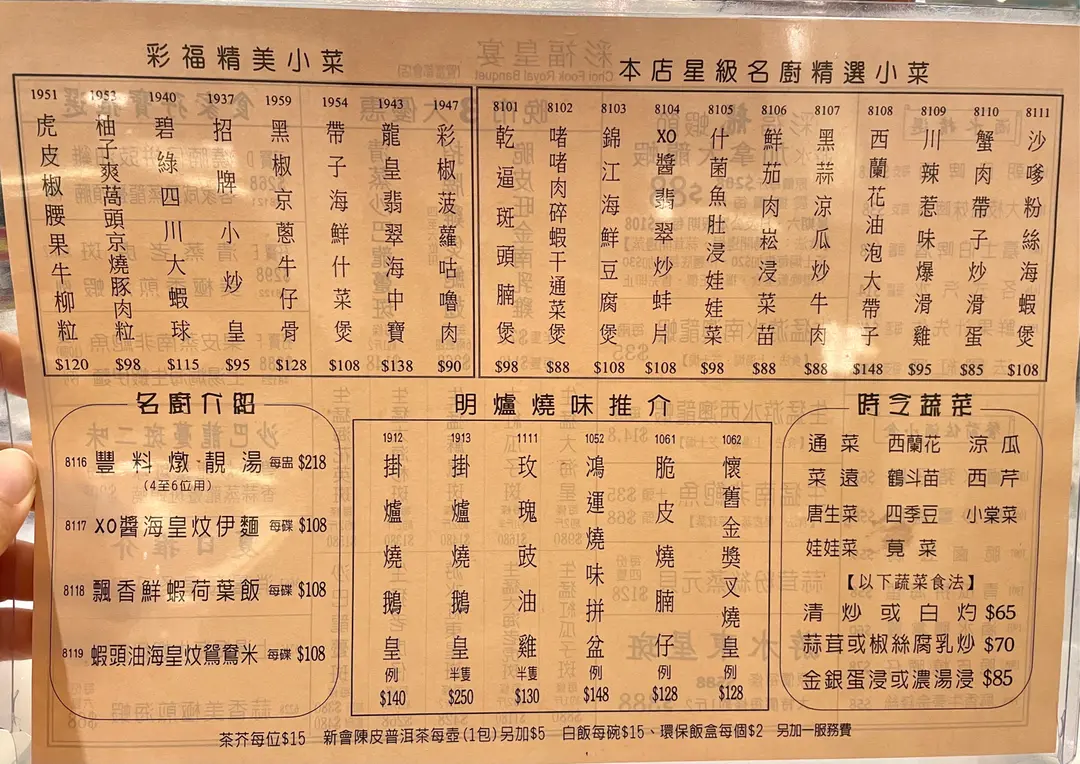 彩福精美小菜
1951 虎皮椒腰果牛柳粒 $120
1953 柚子爽萵頭京燒豚肉粒 $98
1940 碧綠四川大蝦球 $115
1937 招牌小炒皇 $95
1959 黑椒京蔥牛仔骨 $128
1954 帶子海鮮什菜煲 $108
1943 龍皇翡翠海中寶 $138
1947 彩椒菠蘿咕嚕肉 $90
本店星級名廚精選小菜
8101 乾逼斑頭腩煲 $98
8102 啫啫肉碎蝦干通菜煲 $88
8103 錦江海鮮豆腐煲 $108
8104 XO醬翡翠炒蚌片 $108
8105 什菌魚肚浸娃娃菜 $98
8106 鮮茄肉崧浸菜苗 $88
8107 黑蒜涼瓜炒牛肉 $88
8108 西蘭花油泡大帶子 $148
8109 川辣惹味爆滑雞 $95
8110 蟹肉帶子炒滑蛋 $85
8111 沙嗲粉絲海蝦煲 $108
名廚介紹
8116 豐料燉靚湯 每盅 $218
(4至6位用)
8117 XO醬海皇炆伊麵 每碟 $108
8118 飄香鮮蝦荷葉飯 每碟 $108
8119 蝦頭油海皇炆鴛鴦米 每碟 $108
明爐燒味推介
1912 掛爐燒鵝皇 例 $140
1913 掛爐燒鵝皇 半隻 $250
1111 玫瑰豉油雞 半隻 $130
1052 鴻運燒味拼盆 例 $148
1061 脆皮燒腩仔 例 $128
1062 懷舊金獎叉燒皇 例 $128
時令蔬菜
通菜 西蘭花 涼瓜
菜遠 鶴斗苗 西芹
唐生菜 四季豆 小棠菜
娃娃菜 莧菜
【以下蔬菜食法】
清炒或白灼 $65
蒜茸或椒絲腐乳炒 $70
金銀蛋浸或濃湯浸 $85
茶芥每位$15 新會陳皮普洱茶每壺(1包)另加$5 白飯每碗$15、環保飯盒每個$2 另加一服務費